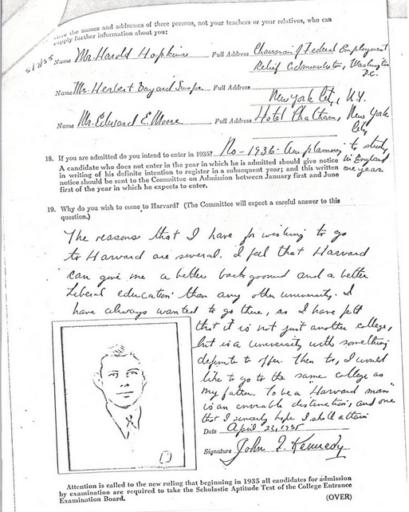 Give the names and addresses of three persons, not your teachers or your relatives, who can
supply further information about you:
Name Mr. Harold Hopkins Full Address Chairman of Federal Employment
Relief Administrator, Washington
D.C.
Name Mr. Herbert Bayard Swope Full Address
New York City, N.Y.
Name Mr. Edward E. Moore Full Address Hotel Chatham, New York
City
18. If you are admitted do you intend to enter in 1935? No - 1936 - Am planning to study
in England
one year
A candidate who does not enter in the year in which he is admitted should give notice
in writing of his definite intention to register in a subsequent year; and this written
notice should be sent to the Committee on Admission between January first and June
first of the year in which he expects to enter.
19. Why do you wish to come to Harvard? (The Committee will expect a careful answer to this
question.)
The reasons that I have for wishing to go
to Harvard are several. I feel that Harvard
can give me a better background and a better
liberal education than any other university. I
have always wanted to go there, as I have felt
that it is not just another college,
but is a university with something
definite to offer. Then too, I would
like to go to the same college as
my father. To be a "Harvard man"
is an enviable distinction, and one
that I sincerely hope I shall attain.
Date April 23, 1935
Signature John F. Kennedy
Attention is called to the new ruling that beginning in 1935 all candidates for admission
by examination are required to take the Scholastic Aptitude Test of the College Entrance
Examination Board.
(OVER)